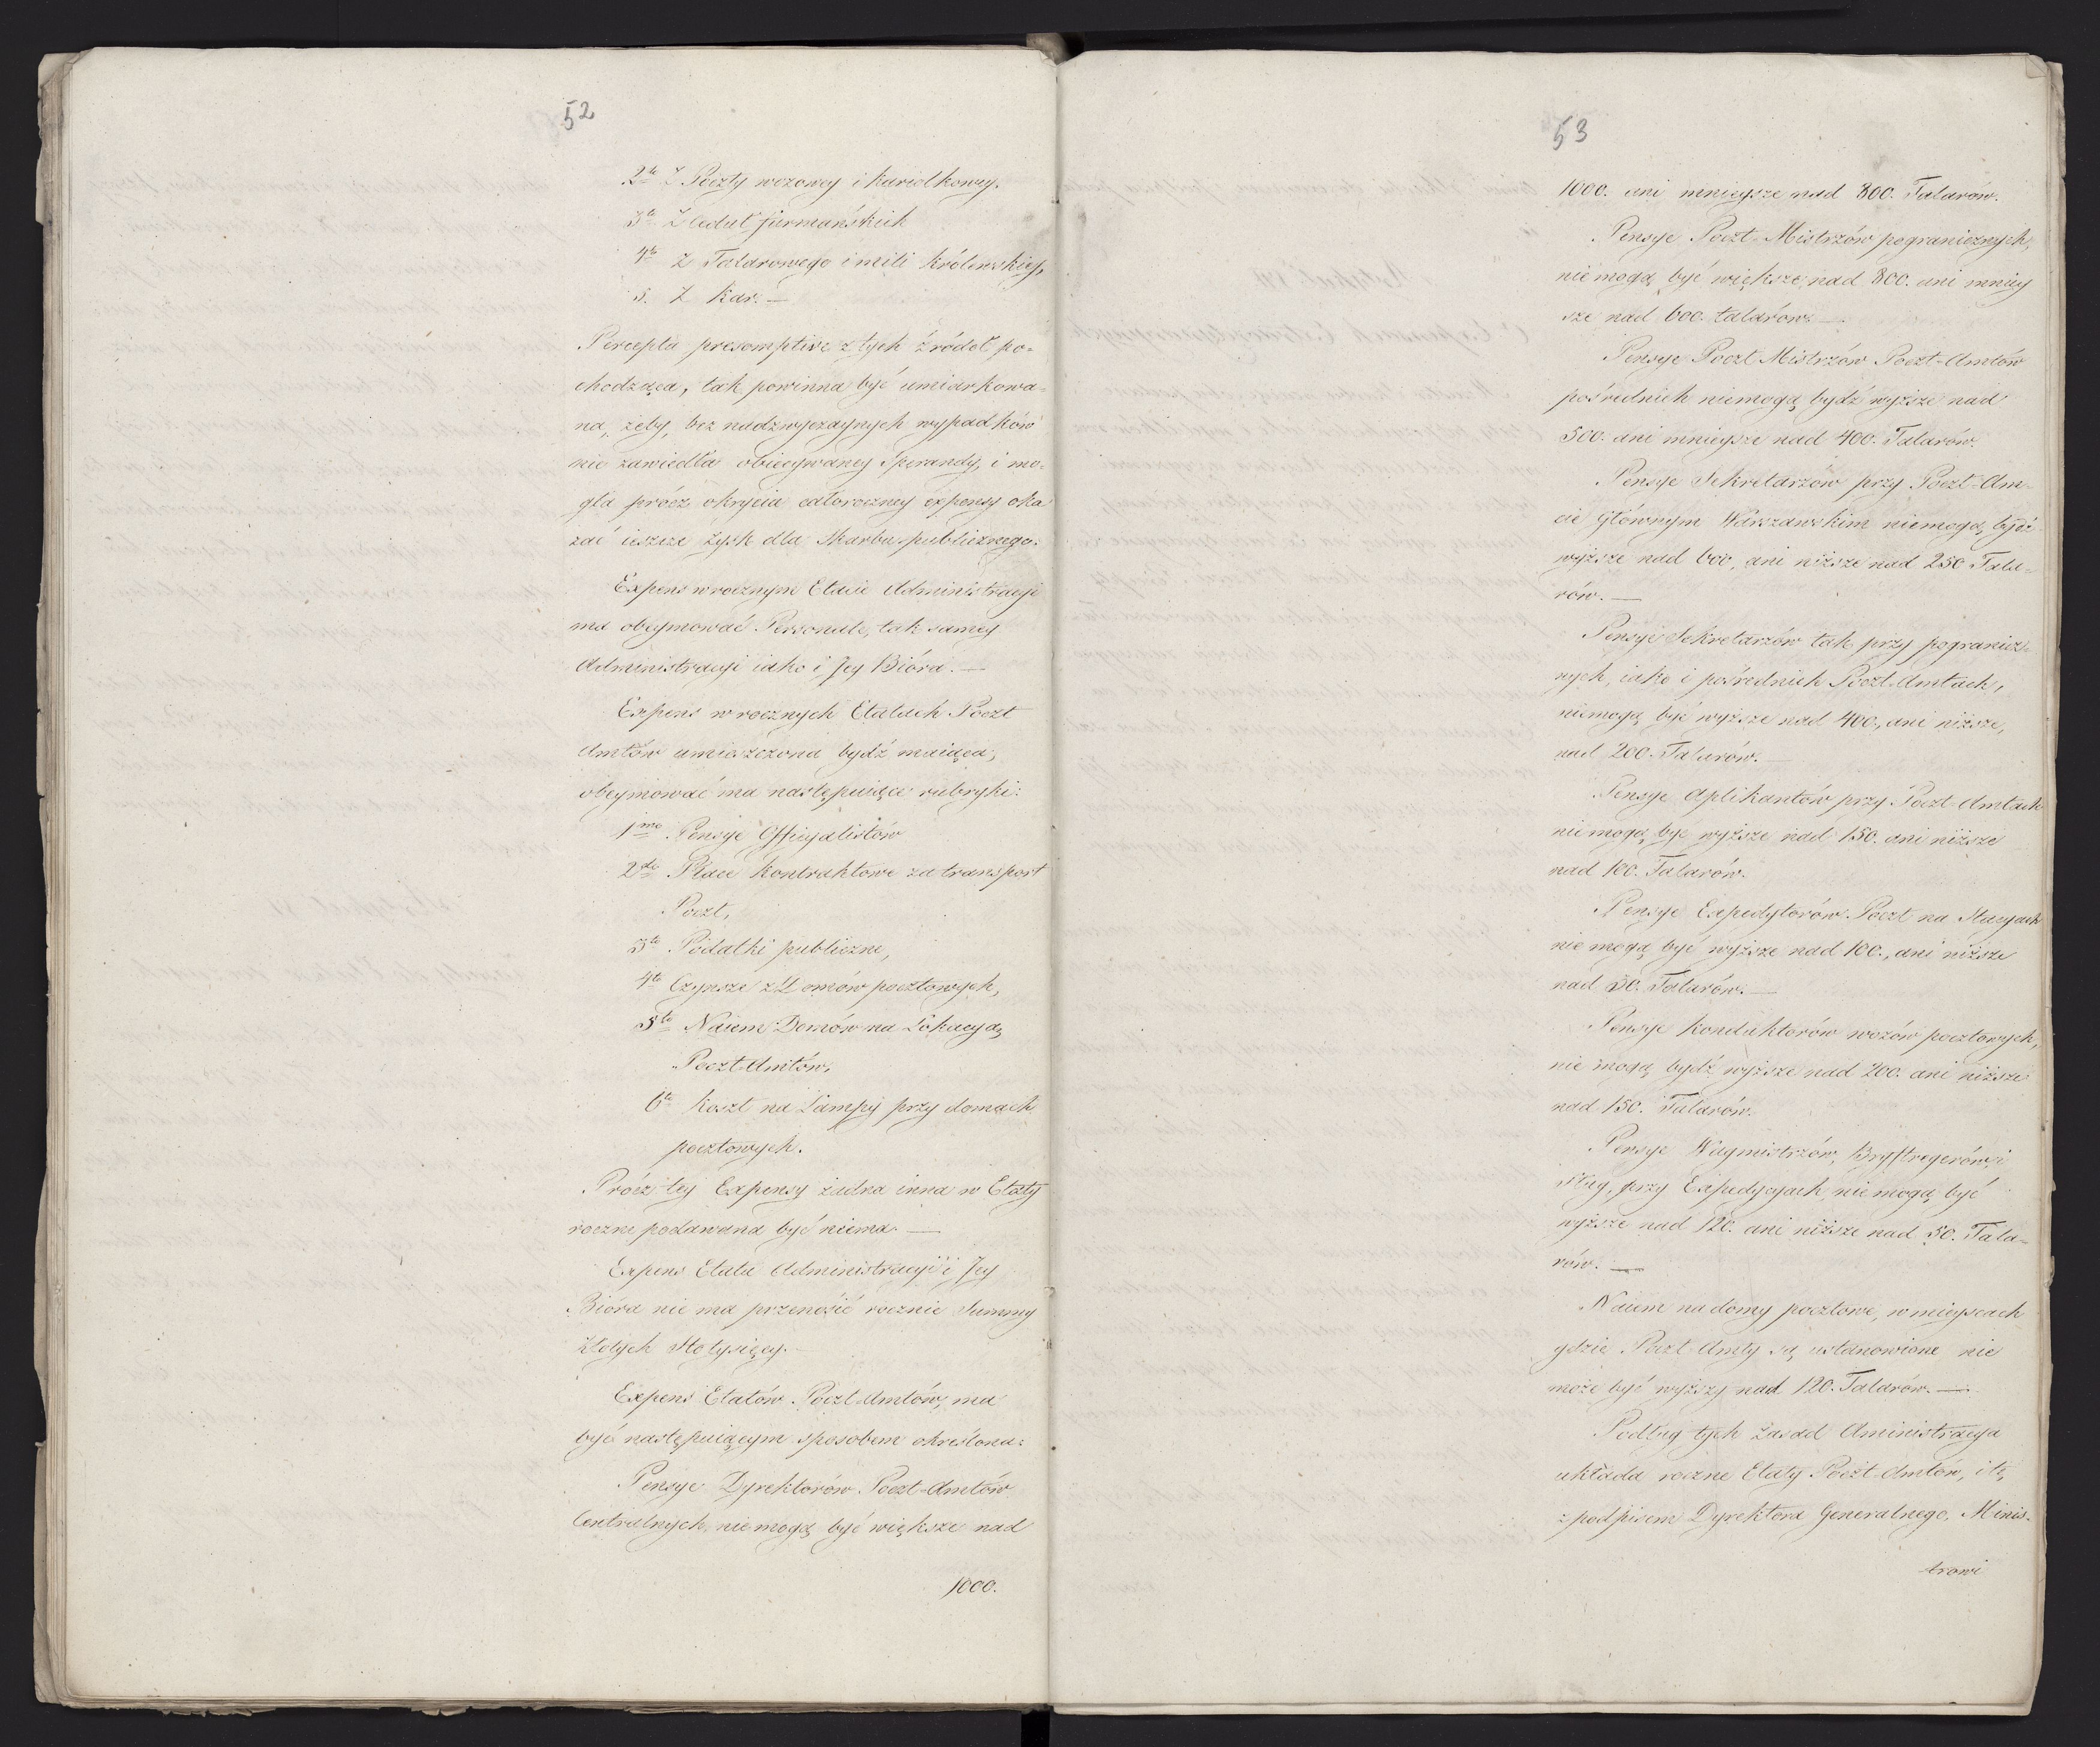 52
2te Z Poczty wozowey i kariolkowey.
3te Z cedul furmańskich
4te Z Talarowego i mili królewskiey,
5. Z kar. —
Percepta presomptive z tych źródeł po-
chodząca, tak powinna być umiarkowa-
na, żeby, bez nadzwyczaynych wypadków
nie zawiedła obiecywaney Sperandy, i mo-
gła prócz okrycia całoroczney expensy oka
zać ieszcze zysk dla Skarbu publicznego.
Expens w rocznym Etacie Administracyi
ma obeymować Personale, tak samey
Administracyi iako i Jey Bióra. —
Expens w rocznych Etatach Poczt
Amtów umieszczona bydź maiąca,
obeymować ma następuiące rubryki:
1mo Pensye Officyalistów
2do Płace kontraktowe za transport
Poczt,
3te Podatki publiczne,
4te Czynsze z Domów pocztowych,
5te Naiem Domów na Lokacyą
Poczt-Amtów,
6te Koszt na Lampy przy domach
pocztowych.
Prócz tey Expensy żadna inna w Etaty
roczne podawana być niema. —
Expens Etatu Administracyi i Jey
Bióra nie ma przenosić rocznie Summy
Złotych Stotysięcy. —
Expens Etatów Poczt-Amtów, ma
być następuiącym sposobem określona:
Pensye Dyrektorów Poczt-Amtów
Centralnych, nie mogą być większe nad
1000.
53
1000. ani mnieysze nad 800. Talarów.
Pensye Poczt-Mistrzów pogranicznych,
nie mogą być większe, nad 800. ani mniey
sze nad 600. talarów. —
Pensye Poczt Mistrzów Poczt-Amtów
pośrednich niemogą bydź wyższe nad
500. ani mnieysze nad 400. Talarów.
Pensye Sekretarzów przy Poczt-Am-
cie Głównym Warszawskim niemogą być
wyższe nad 600, ani niższe nad 250 Tala-
rów. —
Pensye Sekretarzów tak przy pogranicz-
nych, iako i pośrednich Poczt-Amtach,
niemogą być wyższe nad 400., ani niższe,
nad 200. Talarów. —
Pensye Aplikantów przy Poczt-Amtach
nie mogą być wyższe nad 150. ani niższe
nad 100. Talarów.
Pensye Expedytorów Poczt na Stacyach
nie mogą być wyższe nad 100., ani niższe
nad 50. Talarów. —
Pensye konduktorów wozów pocztowych,
nie mogą bydź wyższe nad 200. ani niższe
nad 150. Talarów.
Pensye Wagmistrzów, Bryftregerów, i
Sług, przy Expedycyach, nie mogą być
wyższe nad 120. ani niższe nad 50. Tala-
rów. —
Naiem na domy pocztowe, w mieyscach
gdzie Poczt-Amty są ustanowione nie
może być wyższy nad 120. Talarów. —
Podług tych zasad Aministracya
układa roczne Etaty Poczt-Amtów, i te,
z podpisem Dyrektora Generalnego, Minis-
trowi